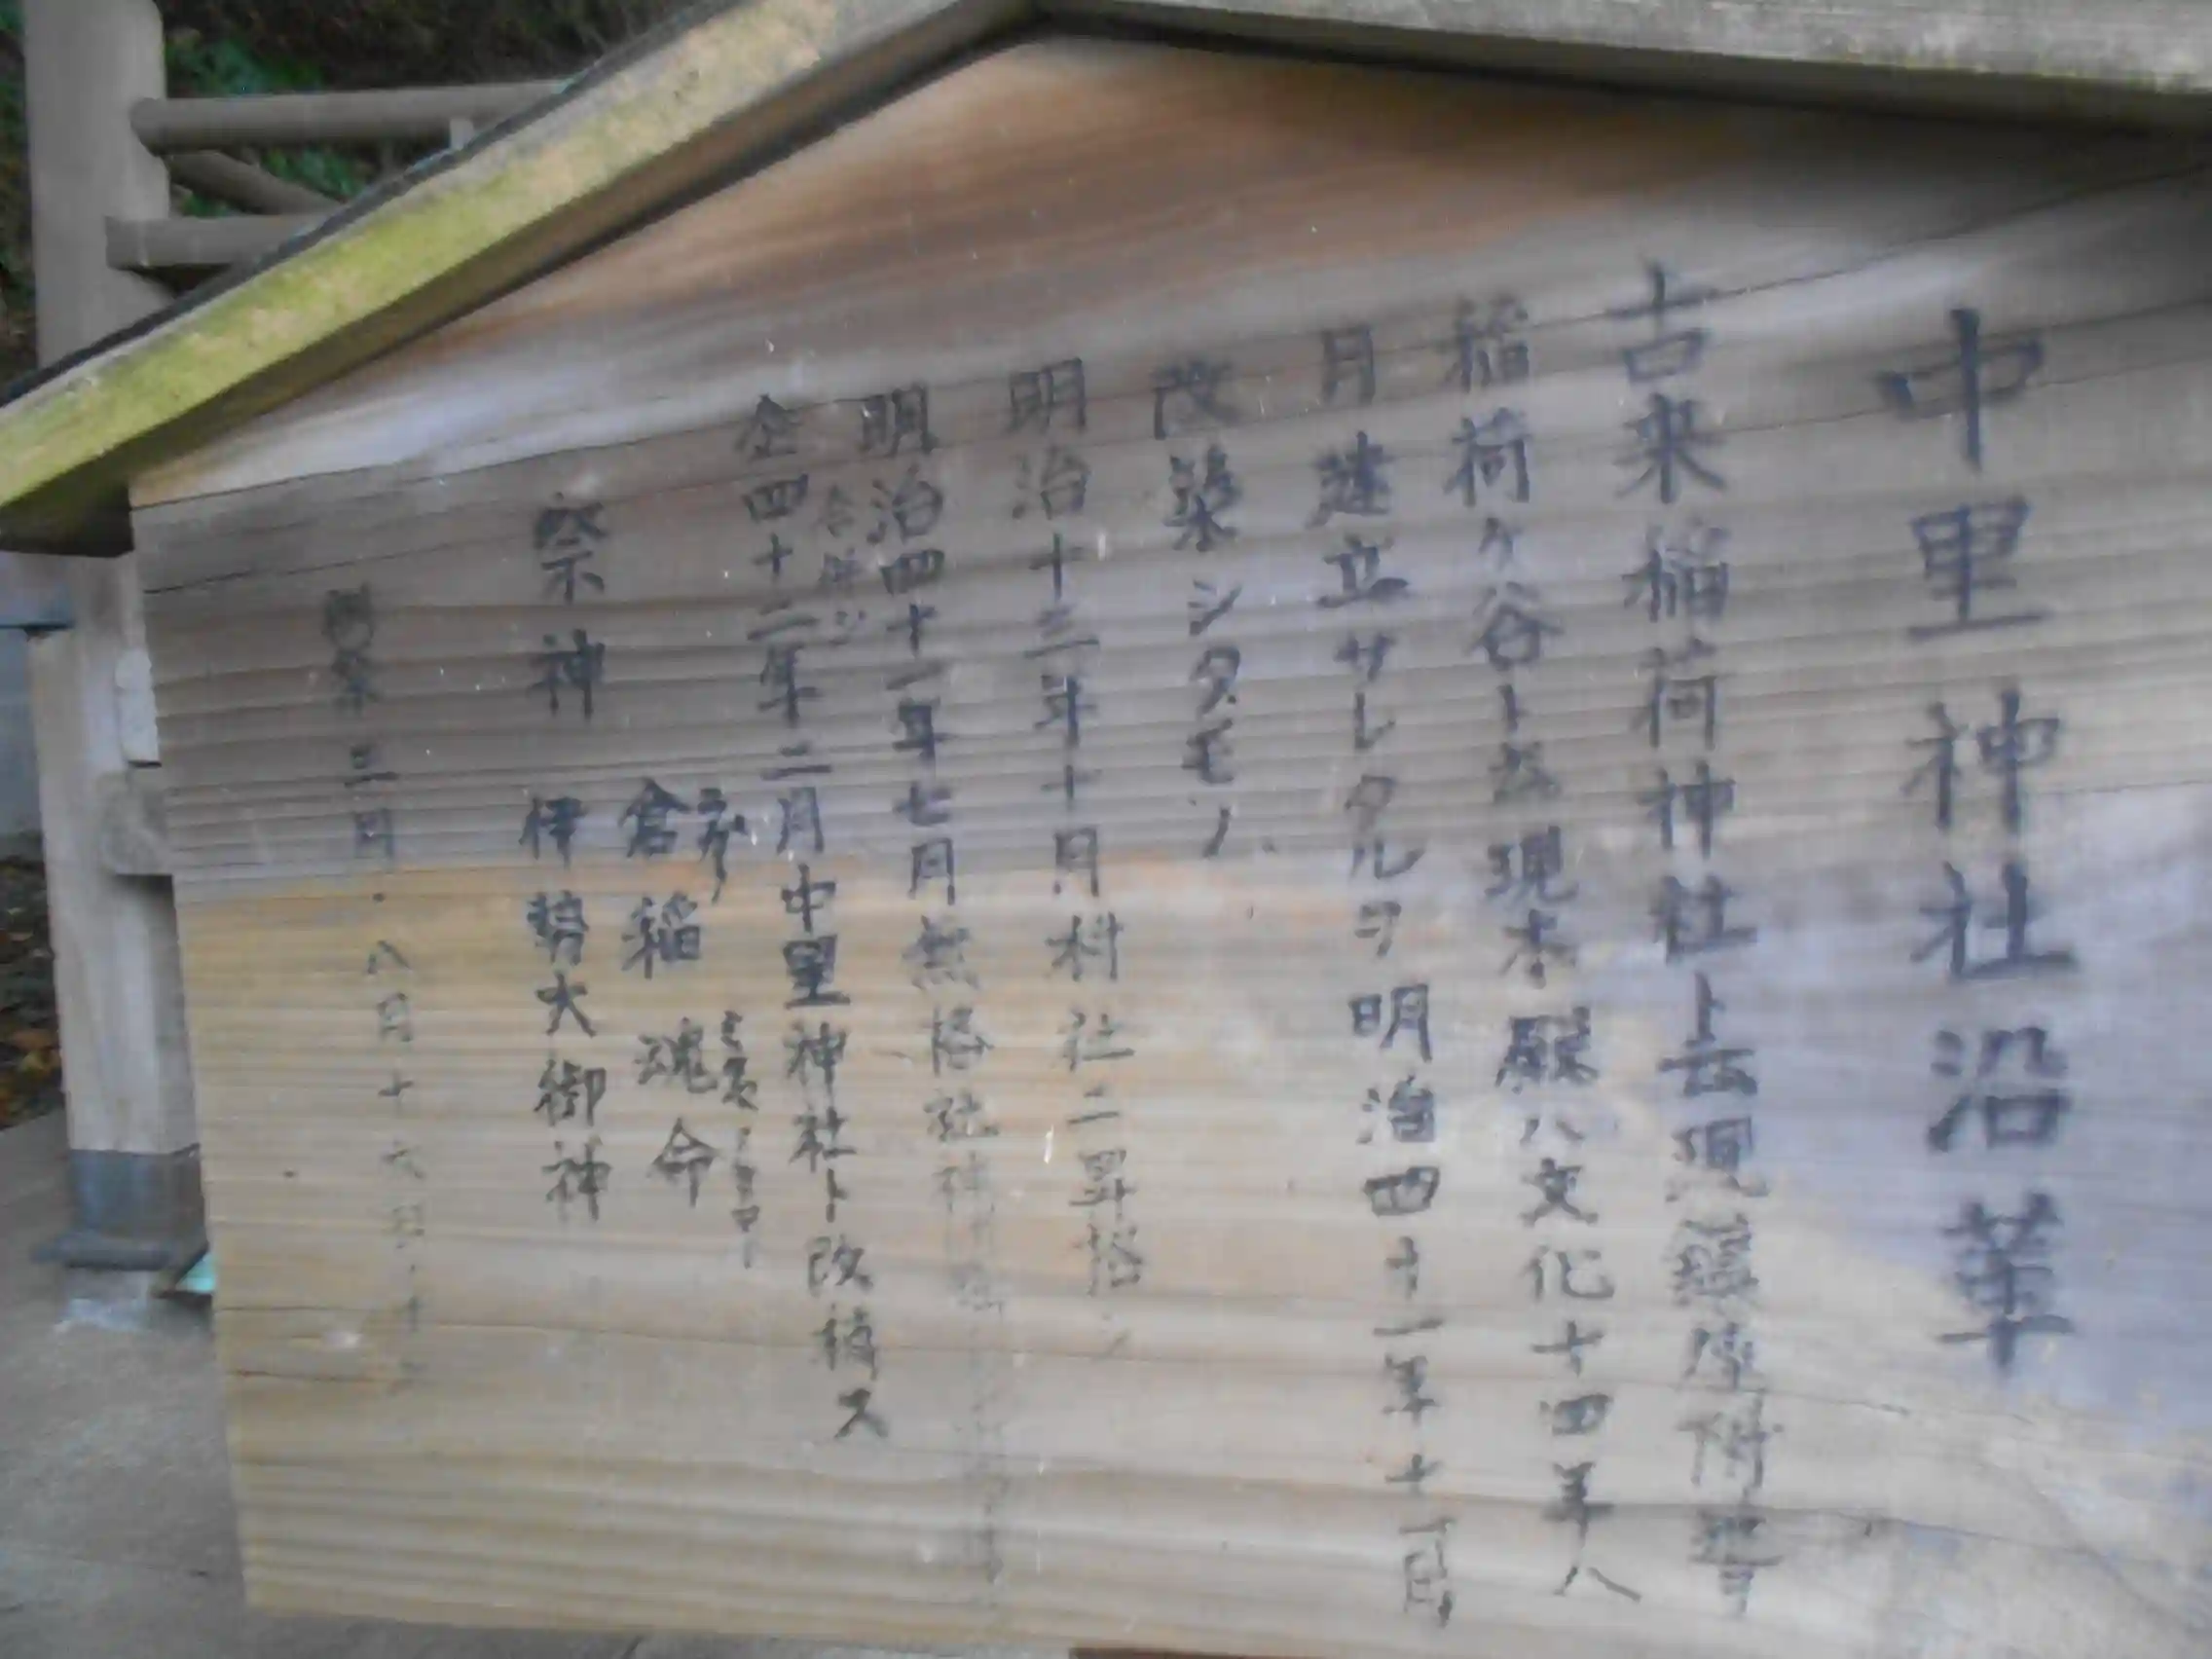 中里神社沿革
古来稲荷神社ト云現鎮座附地ヲ
稲荷ヶ谷ト云現本殿ハ文化十四年八
月建立サレタルヲ明治四十一年十一月
改築シタモノ
明治十三年十月村社ニ昇格
明治四十一年七月無格社神
合併シ
仝四十二年二月中里神社ト改称ス
祭神 倉稲魂命
伊勢大御神
例祭 三月・八月十六